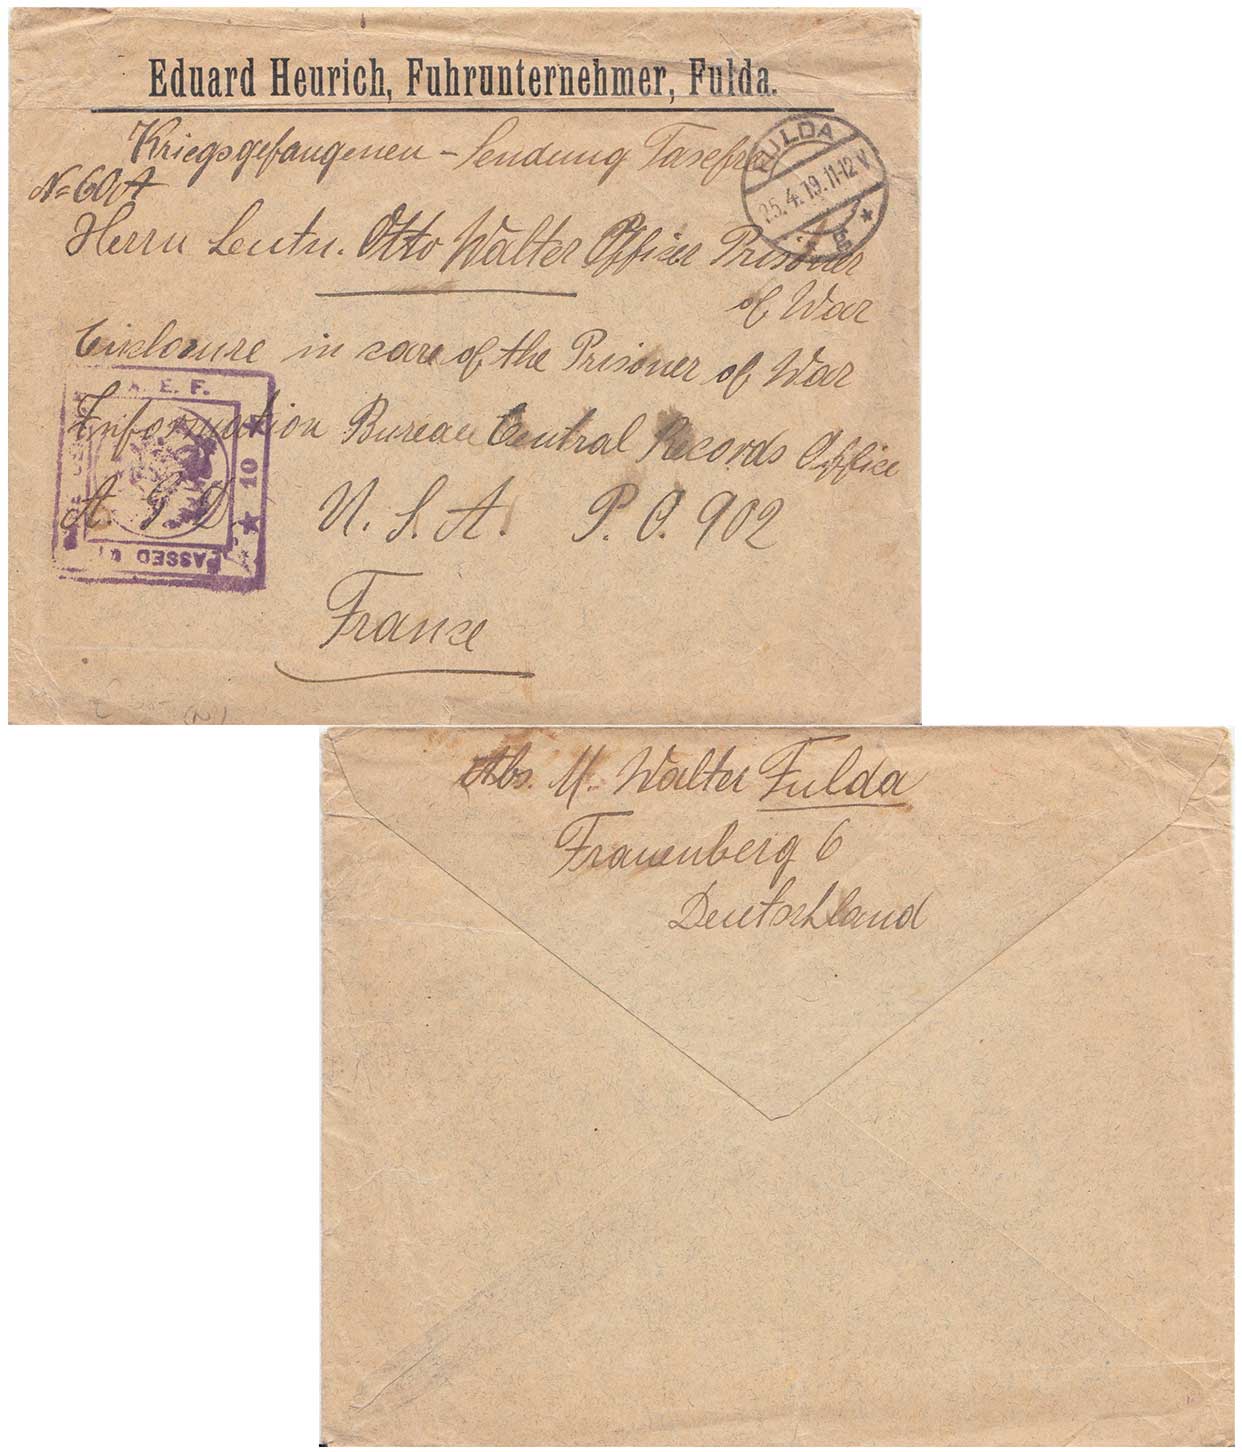 Eduard Heurich, Fuhrunternehmer, Fulda.
Kriegsgefangenen - Sendung Taxefrei
FULDA
25.4.19.11-12V.
N= 60A
Herrn Leutn. Otto Walter Officer Prisoner
of War
Enclosure in care of the Prisoner of War
Information Bureau Central Records Office
A. G. D. U. S. A. P. O. 902
France
A. E. F.
10
PASSED
Abs. M. Walter Fulda
Frauenberg 6
Deutschland